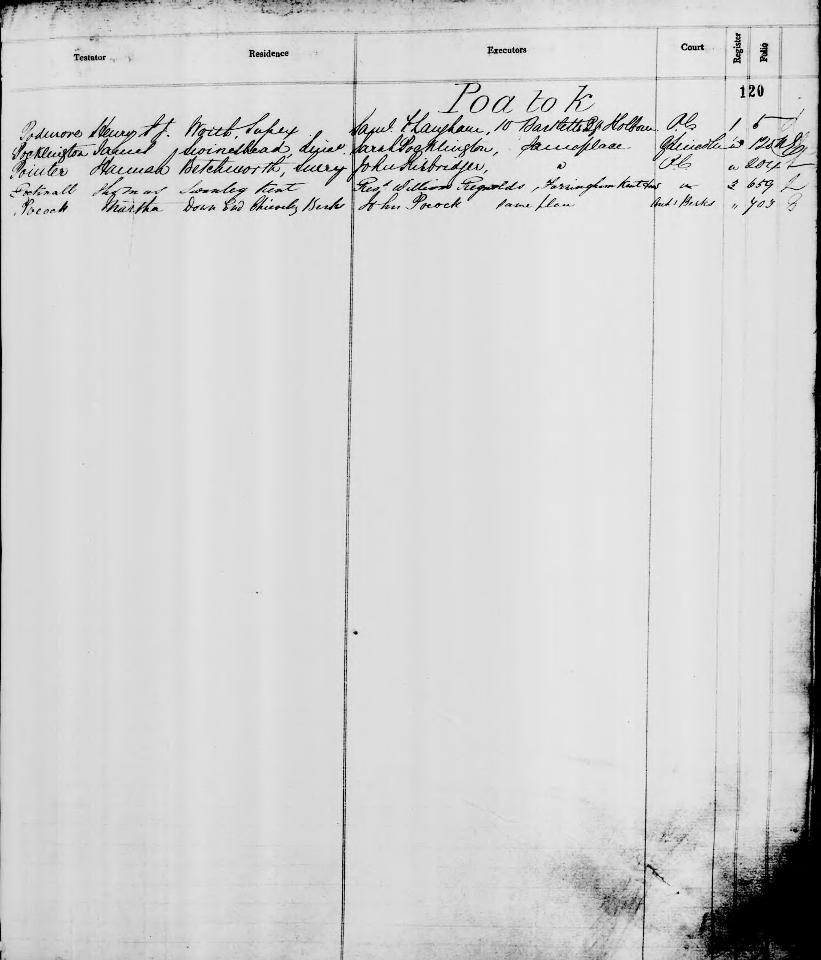 Testator Residence Executors Court Register Folio
Poa to k 120
Podmore Henry Worth, Sussex Saml. F Langham, 10 Bartletts Bgs Holborn P.C. 1 5
Pocklington James Swineshead Linc. Sarah Pocklington, Same place
Pointer Harman Betchworth, Surrey John " P.C. " 204
Thomas Swanley Kent William Reynolds Farningham Kent " 2 659
Pocock Martha Down End Chieveley Berks John Pocock same place Berks " 703